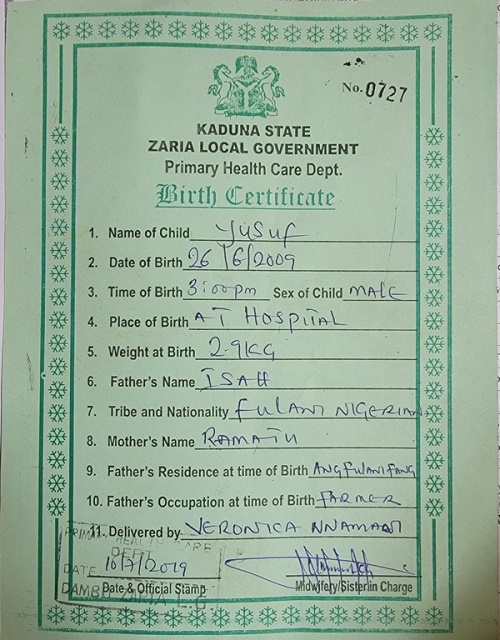 No. 0727
KADUNA STATE
ZARIA LOCAL GOVERNMENT
Primary Health Care Dept.
Birth Certificate
1. Name of Child Yusuf
2. Date of Birth 26/6/2009
3. Time of Birth 3:00pm Sex of Child MALE
4. Place of Birth AT HOSPITAL
5. Weight at Birth 2.9KG
6. Father's Name ISAH
7. Tribe and Nationality FULANI NIGERIAN
8. Mother's Name RAMATU
9. Father's Residence at time of Birth
10. Father's Occupation at time of Birth FARMER
11. Delivered by VERONICA
HEALTH CARE
DEPT.
DATE 10/7/2019
Date & Official Stamp Midwifery/Sisterlin Charge